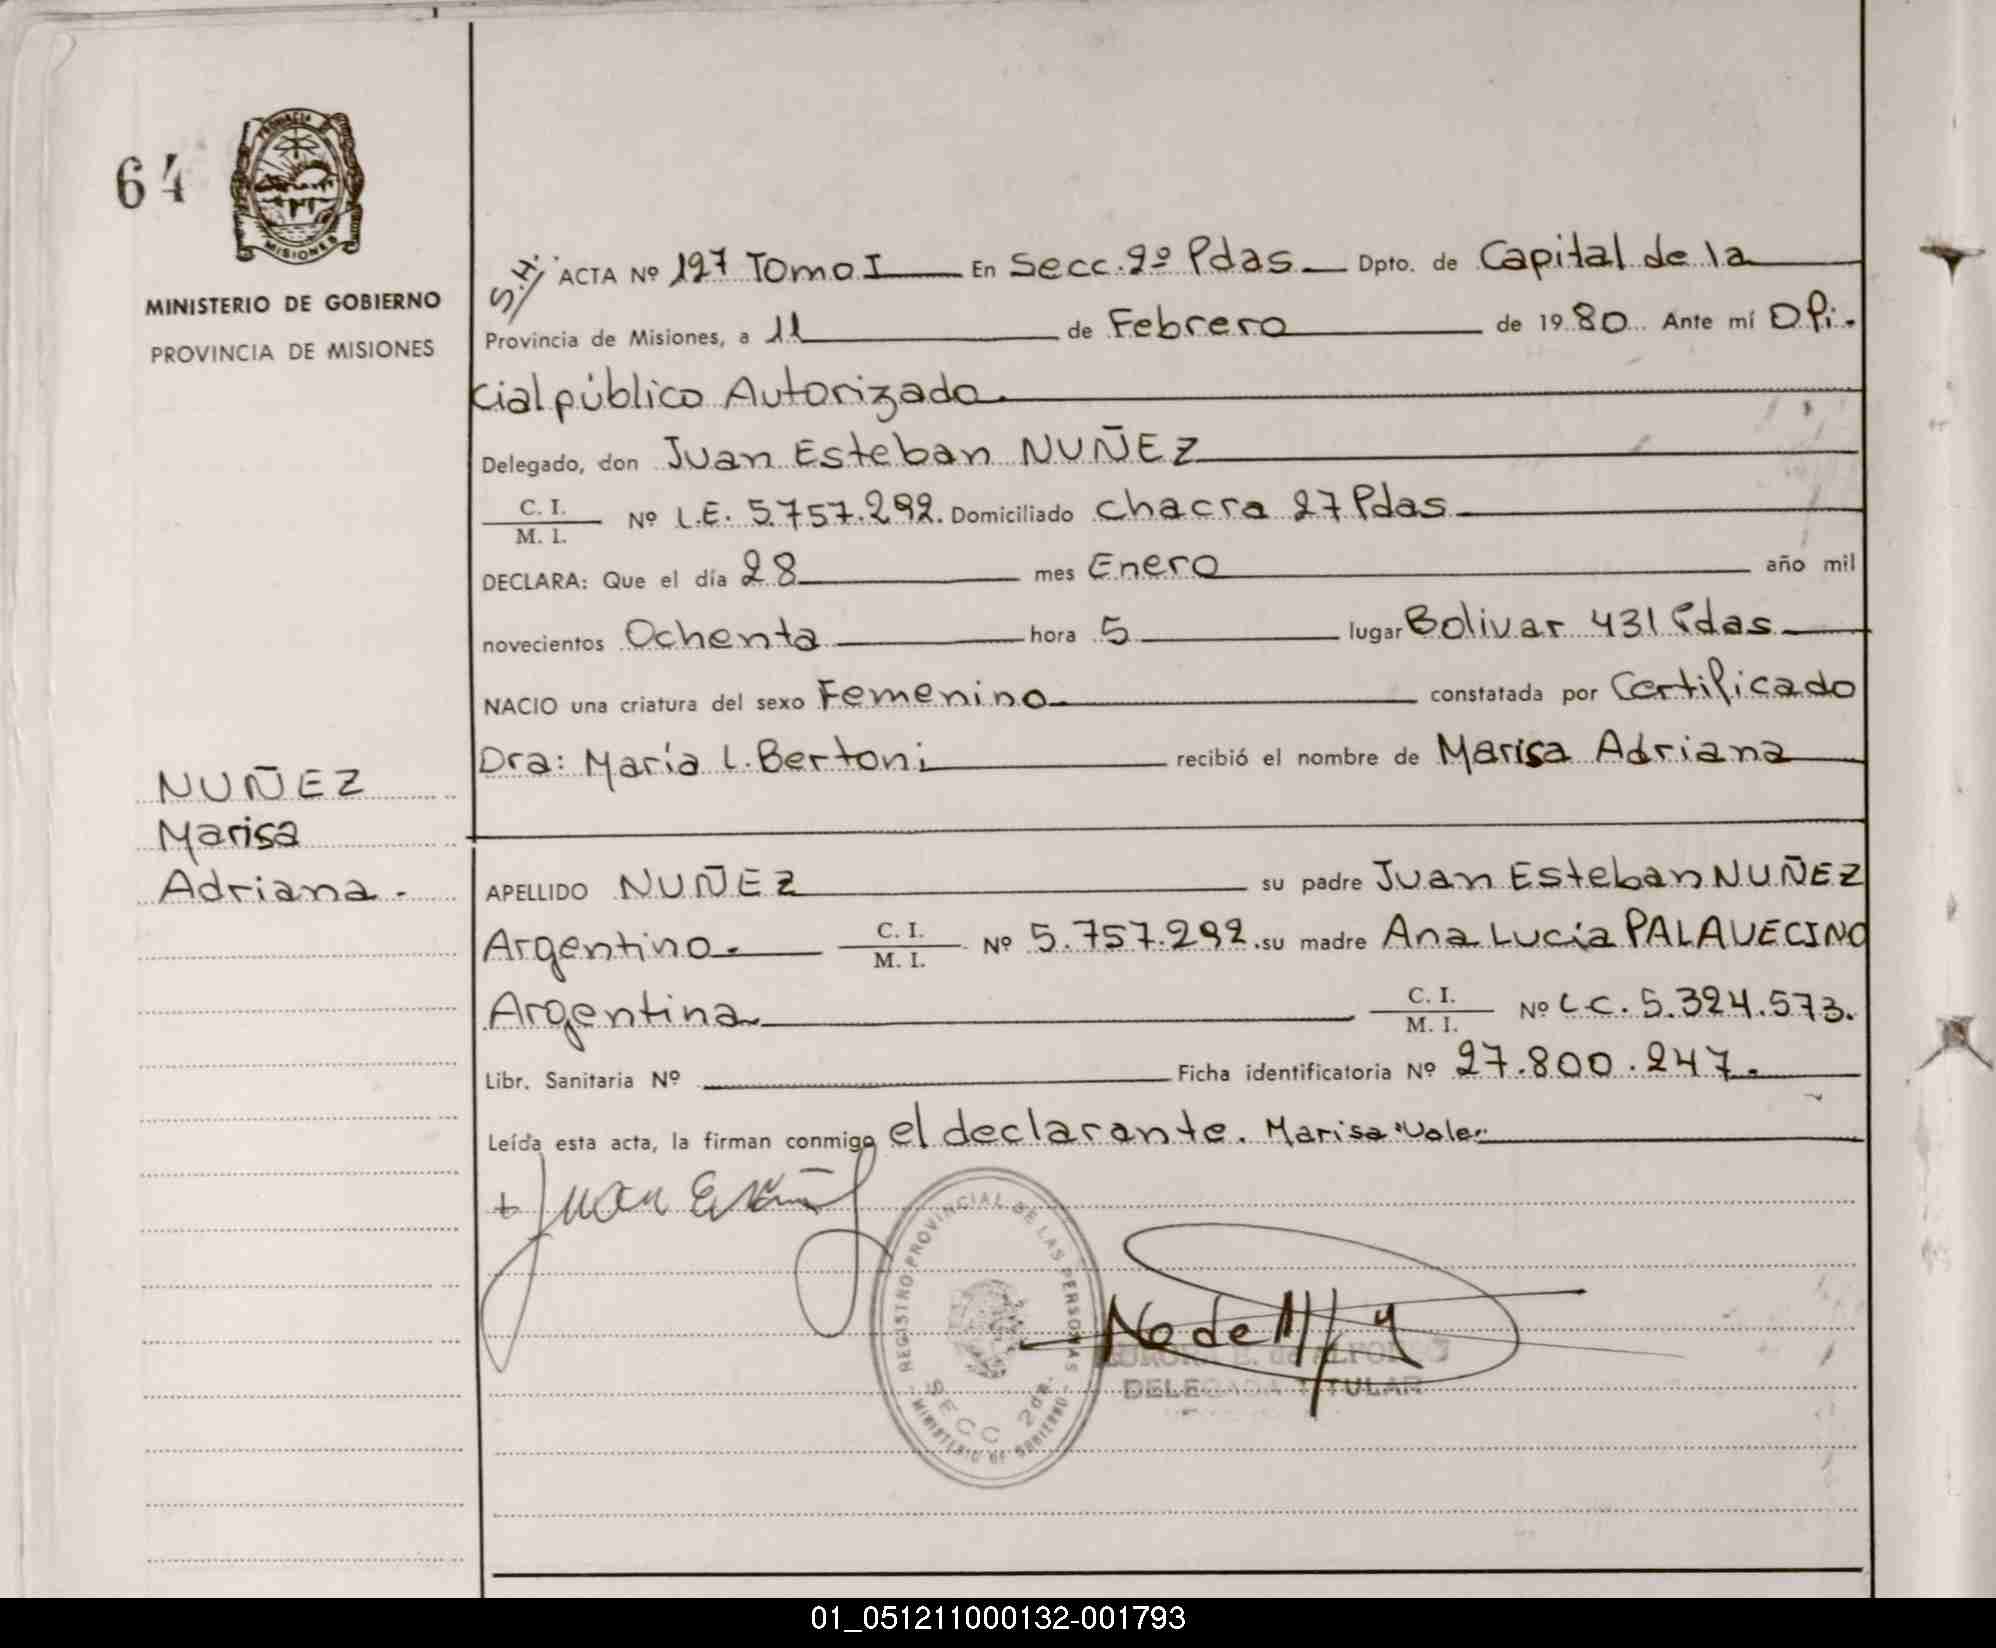 64
PROVINCIA DE
MISIONES
MINISTERIO DE GOBIERNO
PROVINCIA DE MISIONES
NUÑEZ
Marisa
Adriana.-
S.H. ACTA Nº 127 Tomo I En Secc. 2º Pdas Dpto. de Capital de la
Provincia de Misiones, a 11 de Febrero de 1980 Ante mí Ofi-
cial público Autorizado.
Delegado, don Juan Esteban NUÑEZ
C. I.
M. I. Nº L.E. 5.757.292. Domiciliado chacra 27 Pdas
DECLARA: Que el día 28 mes Enero año mil
novecientos Ochenta hora 5 lugar Bolivar 431 Pdas
NACIO una criatura del sexo Femenino constatada por Certificado
Dra: María L. Bertoni recibió el nombre de Marisa Adriana
APELLIDO NUÑEZ su padre Juan Esteban NUÑEZ
Argentino.- C. I. M. I. Nº 5.757.292. su madre Ana Lucia PALAVECINO
Argentina C. I. M. I. Nº L.C. 5.324.573.
Libr. Sanitaria Nº Ficha identificatoria Nº 27.800.247.
Leída esta acta, la firman conmigo el declarante. Marisa "Vale"
Juan
REGISTRO PROVINCIAL DE LAS PERSONAS
SECC 2da.
MINISTERIO DE GOBIERNO
DELEGADA TITULAR
01_051211000132-001793